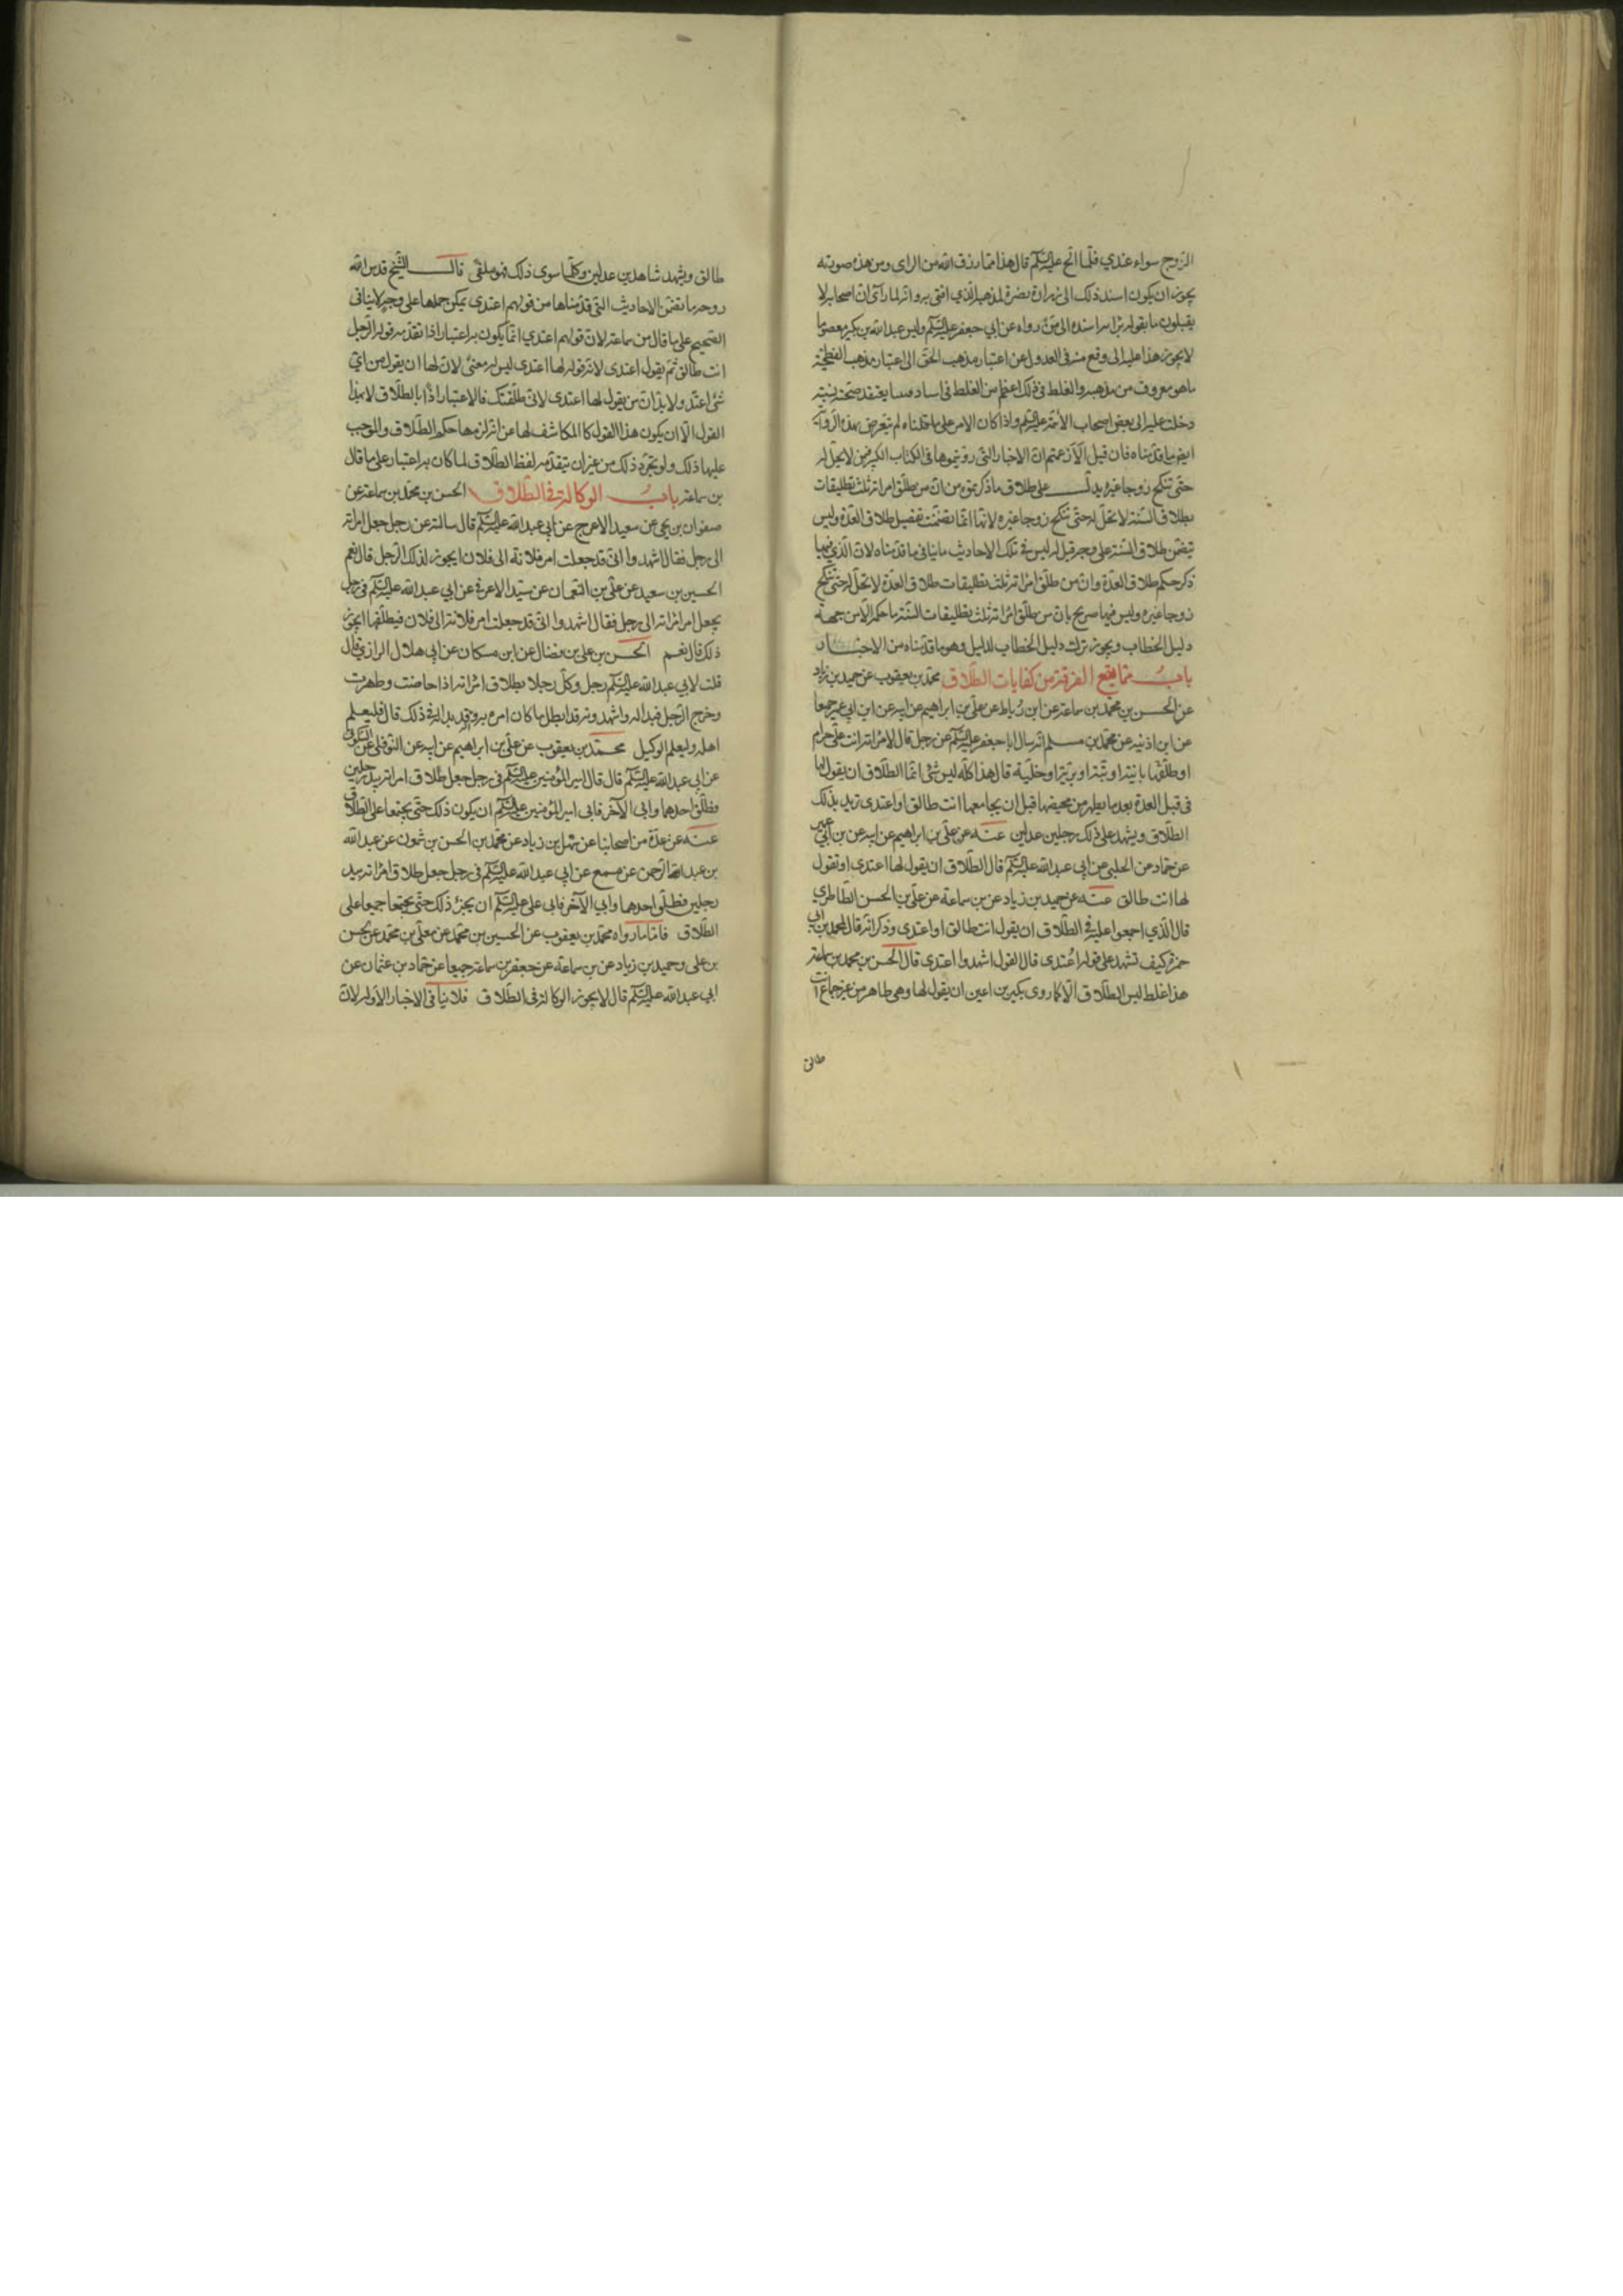 الزوج سواء عندي فلما الح عليه السلم قال هذا مما رزق الله من الراى ومن هذه صورته
يجوز ان يكون اسند ذلك الى زرارة نصرة لمذهبه الذي افتى به وانه لما رآى ان اصحابه لا
يقبلون ما يقوله برايه اسنده الى من رواه عن ابي جعفر عليه السلم وليس عبد الله بن بكير معصوما
لا يجوز هذا عليه الى وقع منه فى العدول عن اعتبار مذهب الحق الى اعتبار مذهب الفطحية
ما هو معروف من مذهبه والغلط فى ذلك اعظم من الغلط فى اسناد فيما يعتقد صحته لشبهة
دخلت عليه الى بعض اصحاب الأئمة عليه السلم واذا كان الامر على ما قلناه لم تعترض هذه الرواية
ايضا ما قدمناه فان قيل الا زعمتم ان الاخبار التى رويتموها فى الكتاب الكبير من لا يحل له
حتى تنكح زوجا غيره يدل على طلاق ما ذكرتموه من ان من طلق امراته ثلث تطليقات
بطلاق السنة لا تحل له حتى تنكح زوجا غيره لانها انما تضمنت تفصيل طلاق العدة وليس
تيضمن طلاق السنة على وجه قيل له ليس فى تلك الاحاديث ما ينافى ما قدمناه لان الذي فيها
ذكر حكم طلاق العدة وان من طلق امراته ثلث تطليقات طلاق العدة لا تحل له حتى تنكح
زوجا غيره وليس فيها صريح بان من طلق امراته ثلث تطليقات السنة ما حكمه الا من جهة
دليل الخطاب ويجوز ترك دليل الخطاب لدليل وهو ما قدمناه من الاخبار
باب ما يقع الفرقة من كفايات الطلاق محمد بن يعقوب عن حميد بن زياد
عن الحسن بن محمد بن سماعة عن ابن رباط عن على بن ابراهيم عن ابيه عن ابن ابي عمير جميعا
عن ابن اذنيه عن محمد بن مسلم انه سال ابا جعفر عليه السلم عن رجل قال لامراته انت على حرام
او طلقها باينة او بتة او برية او خلية قال هذا كله ليس بشئ انما الطلاق ان يقول لها
فى قبل العدة بعد ما يطهر من محيضها قبل ان يجامعها انت طالق او اعتدى يريد بذلك
الطلاق ويشهد على ذلك رجلين عدلين عنه عن على بن ابراهيم عن ابيه عن بن ابي عمير
عن حماد عن الحلبى عن ابي عبد الله عليه السلم قال الطلاق ان يقول لها اعتدى او تقول
لها انت طالق عنه عن حميد بن زياد عن بن سماعة عن على بن الحسن الطاطري
قال الذي اجمعوا عليه فى الطلاق ان يقول انت طالق او اعتدى وذكر انه قال لمحمد بن ابي
حمزة كيف تشهد على قوله اعتدى قال تقول اشهدوا اعتدى قال الحسن بن محمد بن سماعة
هذا غلط ليس الطلاق الا كما روى بكير بن اعين ان يقول لها وهى طاهر من غير جماع انت
طالق
طالق ويشهد شاهدين عدلين وكلما سوى ذلك فهو ملقى قال الشيخ قدس الله
روحه ما تضمن الاحاديث التى قدمناها من قولهم اعتدى يمكن حملها على وجه لا ينافى
الصحيح على ما قال بن سماعة لان قولهم اعتدي انما يكون به اعتبار اذا تقدمه قول الرجل
انت طالق ثم يقول اعتدى لان قوله لها اعتدى ليس له معنى لان لها ان يقول من اي
شئ اعتد ولا بد ان من يقول لها اعتدى لانى طلقتك فالاعتبار اذا بالطلاق لا بهذا
القول الا ان يكون هذا القول كالمكاشف لها عن انه لزمها حكم الطلاق والموجب
عليها ذلك ولو تجرد ذلك من غير ان تيقدمه لفظ الطلاق لما كان به اعتبار على ما قال
بن سماعة باب الوكالة فى الطلاق الحسن بن محمد بن سماعة عن
صفوان بن يحيى عن سعيد الاعرج عن ابي عبد الله عليه السلم قال سالته عن رجل جعل امراته
الى رجل فقال اشهدوا انى قد جعلت امر فلانة الى فلان ايجوز لذلك الرجل قال نعم
الحسين بن سعيد عن على بن النعمان عن سيد الاعرج عن ابي عبد الله عليه السلم فى رجل
يجعل امر امراته الى رجل فقال اشهدوا انى قد جعلت امر فلانة الى فلان فيطلقها ايجوز
ذلك قال نعم الحسن بن على بن فضال عن ابن مسكان عن ابي هلال الرازي قال
قلت لابي عبد الله عليه السلم رجل وكل رجلا بطلاق امراته اذا حاضت وطهرت
وخرج الرجل فبدا له واشهد انه قد ابطل ما كان امره به وانه قد بدا له فى ذلك قال فليعلم
اهله وليعلم الوكيل محمد بن يعقوب عن على بن ابراهيم عن ابيه عن النوفلى عن السكونى
عن ابي عبد الله عليه السلم قال قال امير المؤمنين عليه السلم فى رجل جعل طلاق امراته بيد رجلين
فطلق احدهما وابى الآخر فابى امير المؤمنين عليه السلم ان يكون ذلك حتى يجتمعا على الطلاق
عنه عن عدة من اصحابنا عن سهل بن زياد عن محمد بن الحسن بن شمون عن عبد الله
بن عبد الرحمن عن مسمع عن ابي عبد الله عليه السلم فى رجل جعل طلاق امراته بيد
رجلين فطلق احدهما وابي الآخر فابى على عليه السلم ان يجيز ذلك حتى يجتمعا جميعا على
الطلاق فاما ما رواه محمد بن يعقوب عن الحسين بن محمد عن معلى بن محمد عن الحسن
بن على وحميد بن زياد عن بن سماعة عن جعفر بن سماعة جميعا عن حماد بن عثمان عن
ابي عبد الله عليه السلم قال لا يجوز الوكالة فى الطلاق فلا ينافى الاخبار الاوله لان